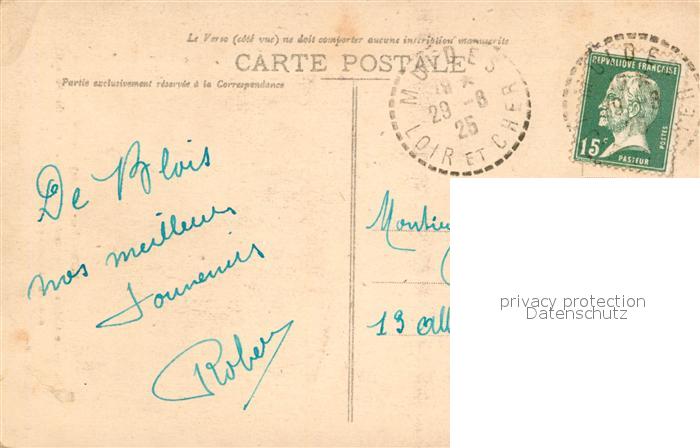 Le Verso (côté vue) ne doit comporter aucune inscription manuscrite
CARTE POSTALE
Partie exclusivement réservée à la Correspondance
De Blois
nos meilleurs
souvenirs
Rober
13 all
29 - 8
25
LOIR ET CHER
REPVBLIQUE FRANÇAISE
15c
POSTES
PASTEUR
privacy protection
Datenschutz